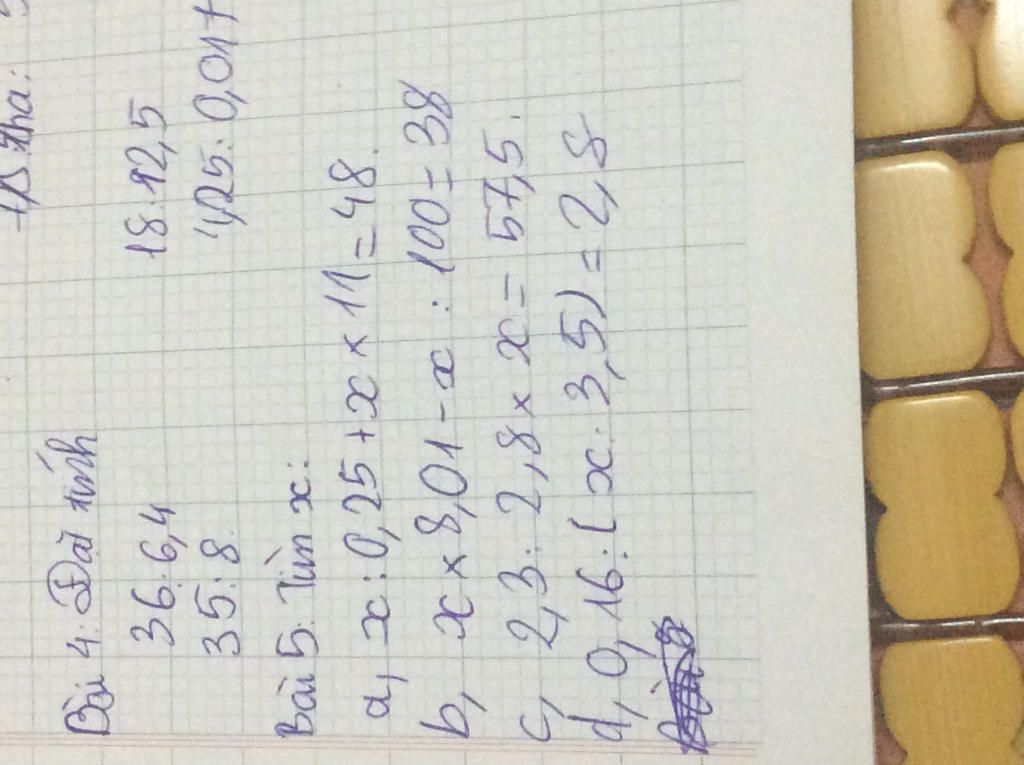 Bài 4: Đặt tính
36:6,4 18:12,5
35:8 4,25:0,01
Bài 5: Tìm x:
a, x:0,25+x×11=48.
b, x×8,01-x:100=38
c, 2,3:2,8×x=57,5.
d, 0,16:(x:3,5)=2,8